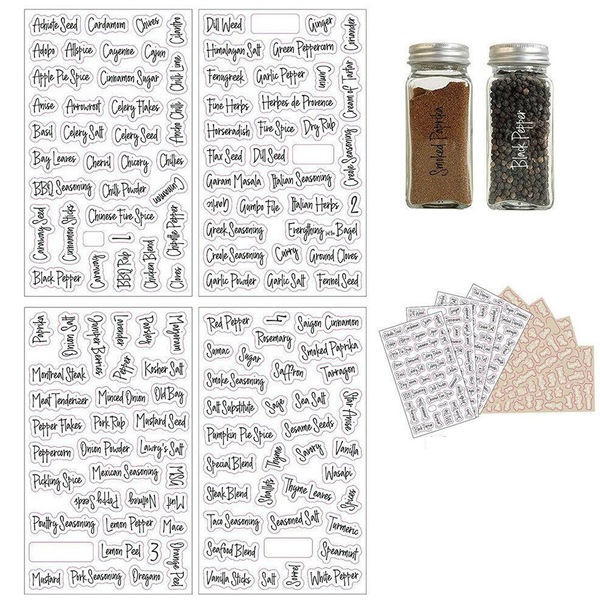 Achiote Seed Cardamom Chives Cilantro
Adobo Allspice Cayenne Cajun
Apple Pie Spice Cinnamon Sugar Chili Lime
Anise Arrowroot Celery Flakes Ancho Chili
Basil Celery Salt Celery Seed
Bay Leaves Chervil Chicory Chilies
BBQ Seasoning Chili Powder Cinnamon
Caraway Seed Cinnamon Sticks Chinese Five Spice Chipotle Pepper
1
Black Pepper Caraway BBQ Rub Chicken Blend Cloves
Dill Weed Ginger Coriander
Himalayan Salt Green Peppercorn
Fenugreek Garlic Pepper Cumin Cream of Tartar
Fine Herbs Herbes de Provence
Horseradish Five Spice Dry Rub Creole Seasoning
Flax Seed Dill Seed
Garam Masala Italian Seasoning
Garlic Gumbo File Italian Herbs 2
Greek Seasoning Everything but the Bagel
Creole Seasoning Curry Ground Cloves
Garlic Powder Garlic Salt Fennel Seed
Smoked Paprika
Black Pepper
Paprika Onion Salt Lavender Parsley Marjoram
Montreal Steak Pepper Kosher Salt
Meat Tenderizer Minced Onion Old Bay
Pepper Flakes Pork Rub Mustard Seed
Peppercorn Onion Powder Lawry's Salt
Pickling Spice Mexican Seasoning MSG
Poppy Seeds Nutmeg Mint
Poultry Seasoning Lemon Pepper Mace
Lemon Peel 3 Orange Peel
Mustard Pork Seasoning Oregano
Red Pepper 4 Saigon Cinnamon
Sumac Sugar Rosemary Smoked Paprika
Smoke Seasoning Saffron Tarragon
Salt Substitute Sage Sea Salt Star Anise
Pumpkin Pie Spice Sesame Seeds
Special Blend Thyme Savory Vanilla
Steak Blend Shallots Thyme Leaves Wasabi Spices
Taco Seasoning Seasoned Salt Turmeric
Seafood Blend Spearmint
Vanilla Sticks Salt Sorrel White Pepper